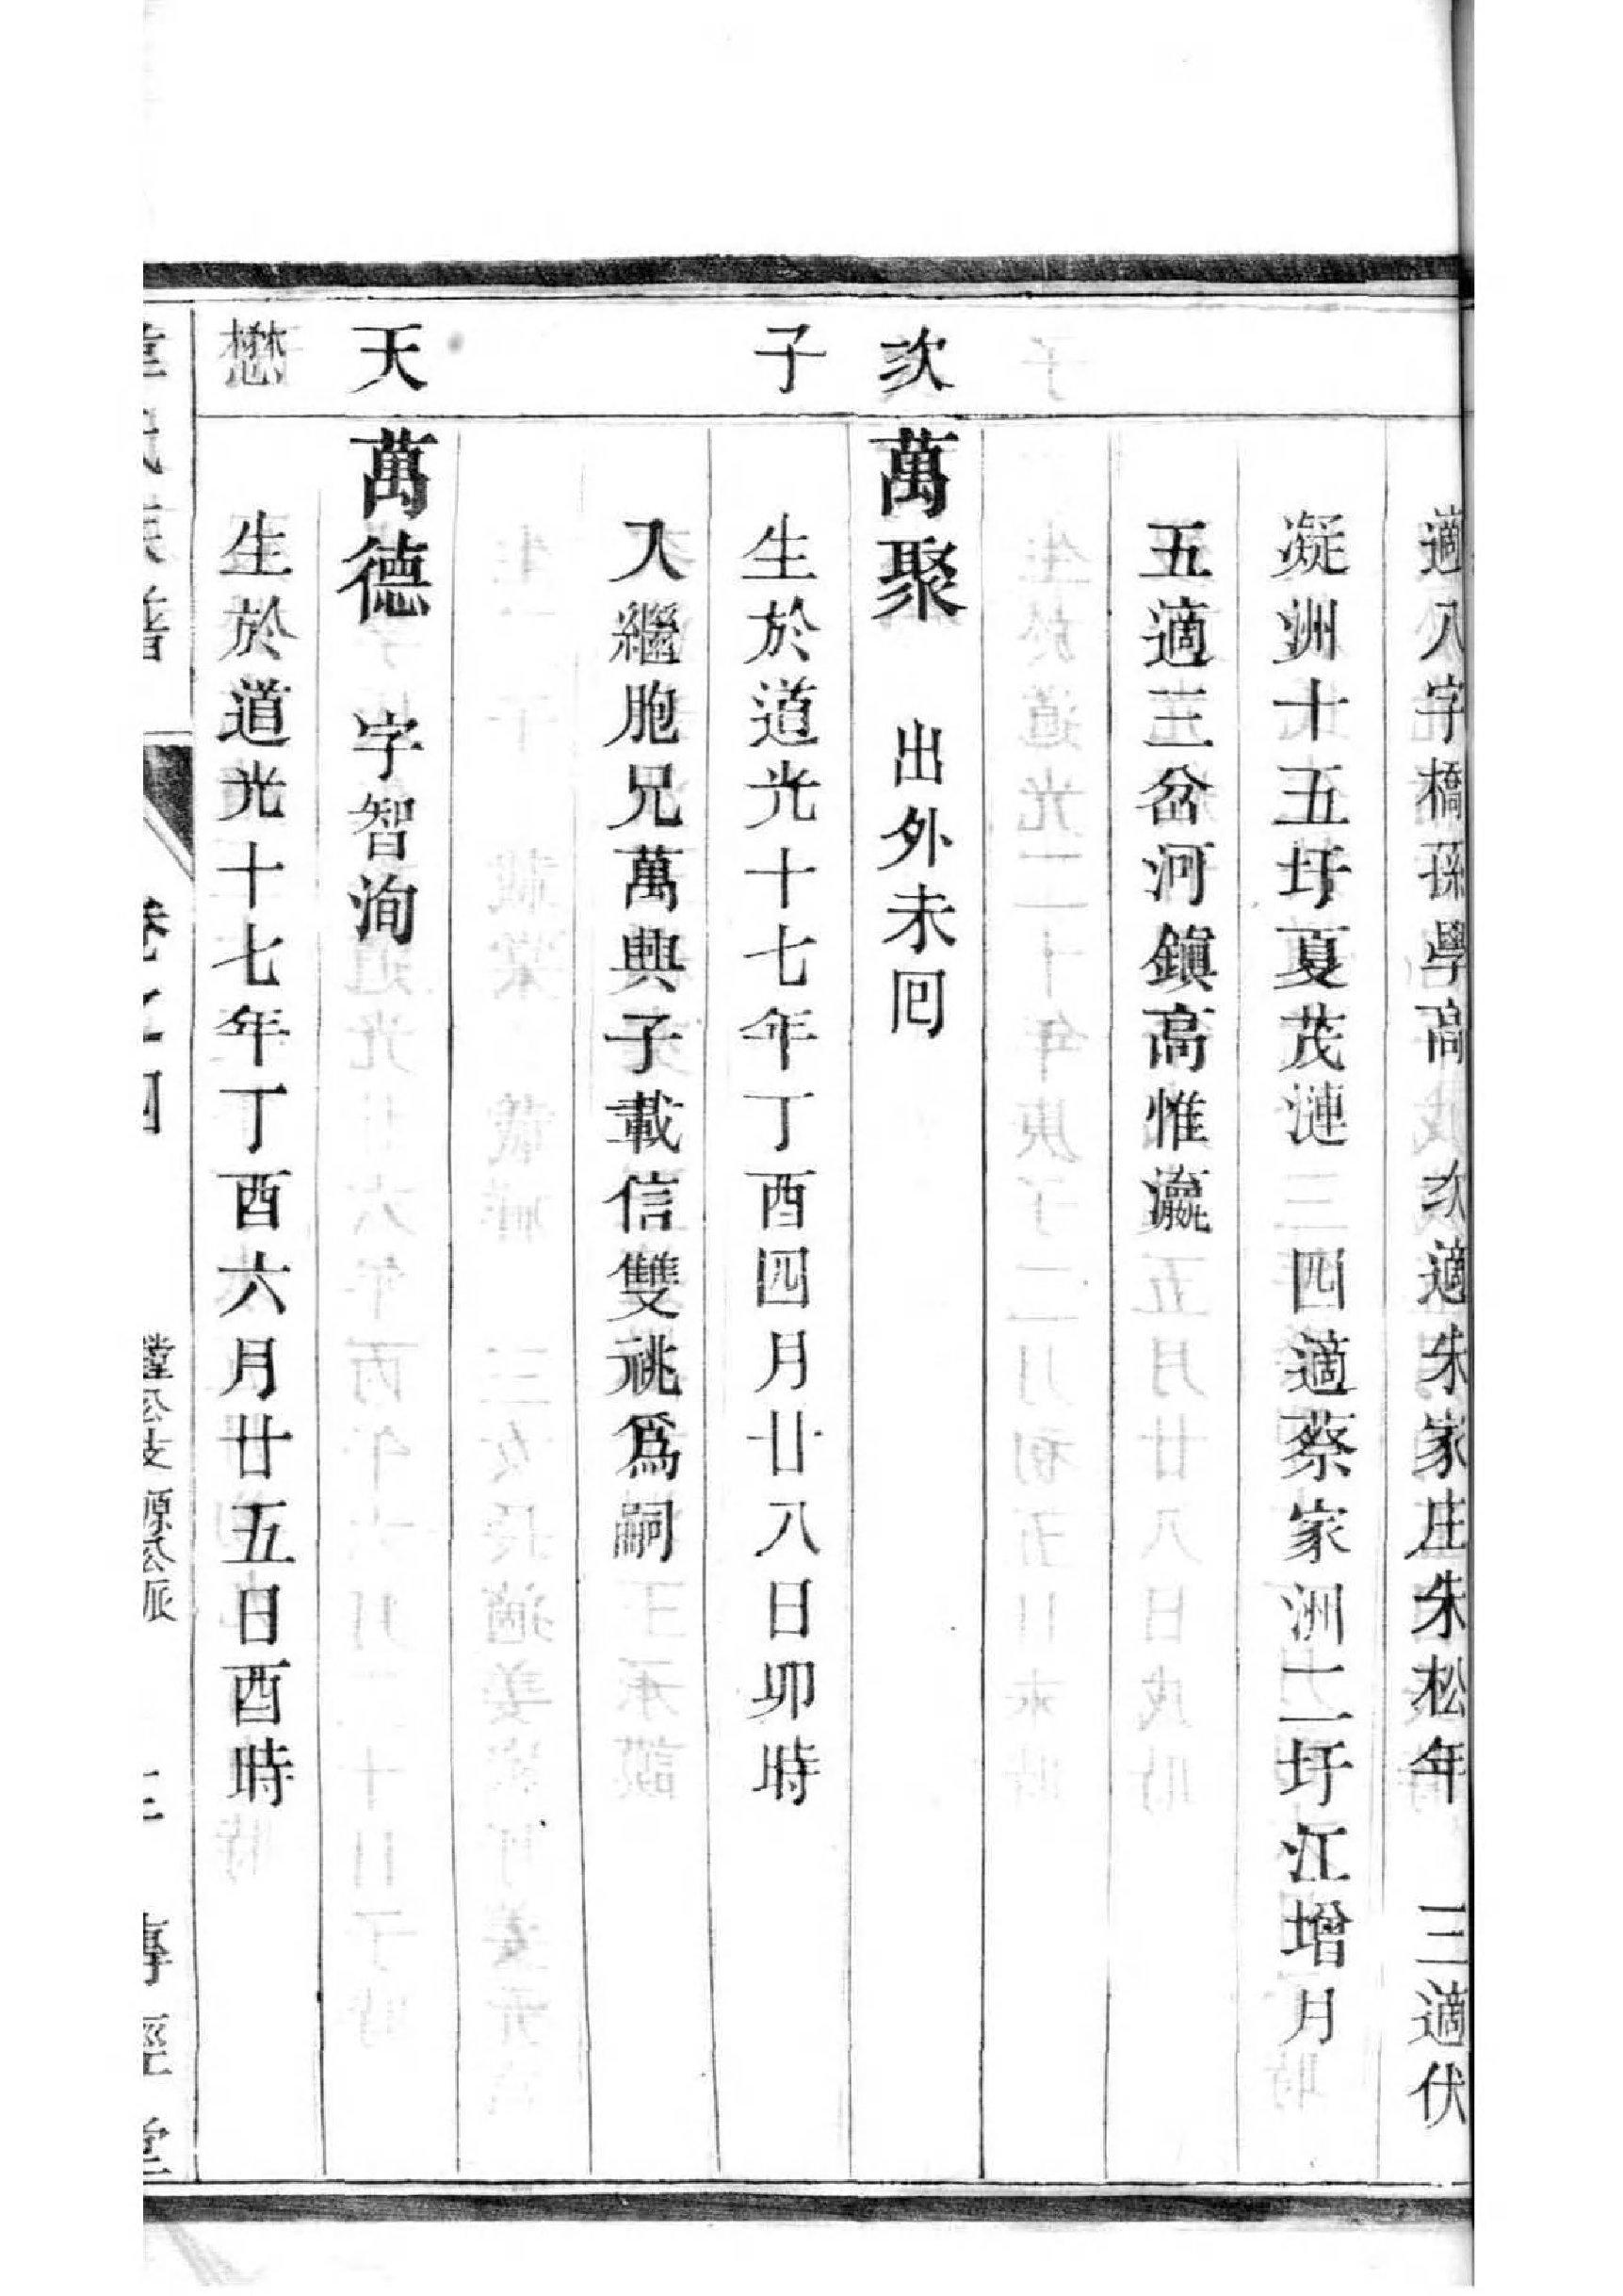 適八字橋孫學高　次適朱家庄朱松年　三適伏
凝洲十五圩夏茂漣　四適蔡家洲二圩江增月
五適三岔河鎮高惟瀛
次
萬聚　出外未囘
子
生於道光十七年丁酉四月廿八日卯時
入繼胞兄萬興子載信雙祧爲嗣
天
萬德　字智洵
懋
生於道光十七年丁酉六月廿五日酉時
族譜　卷之四　公支源公派　傳經堂